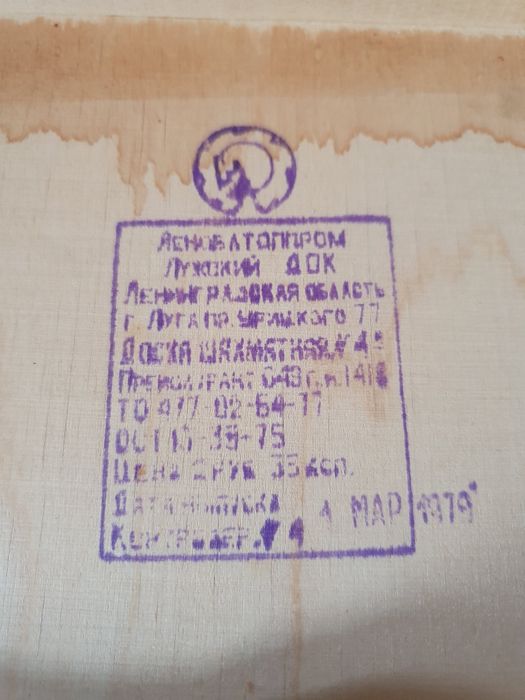 ЛЕНОБЛТОППРОМ
ЛУЖСКИЙ ДОК
ЛЕНИНГРАДСКАЯ ОБЛАСТЬ
Г. ЛУГА ПР. УРИЦКОГО 77
ДОСКА ШАХМАТНАЯ
ПРЕЙСКУРАНТ
ТО 477-02-64-77
ОСТ 13-39-75
ЦЕНА 2 РУБ 35 КОП.
ДАТА ВЫПУСКА 1 МАР 1979
КОНТРОЛЕР. 4